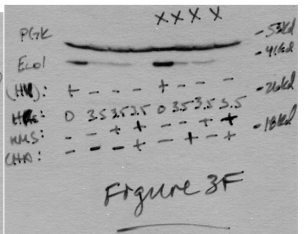 XXXX
PGK -53kd
Eco1 -41kd
-26kd
(HU): + - - - + - - -
0 3.5 3.5 3.5 0 3.5 3.5 3.5
-18kd
- - + + - - + +
CHX: - - - + - + - +
Figure 3F